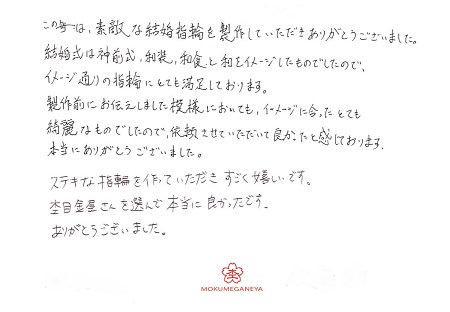 この度は、素敵な結婚指輪を製作していただきありがとうございました。
結婚式は神前式、和装、和食と和をイメージしたものでしたので、
イメージ通りの指輪にとても満足しております。
製作前にお伝えしました模様においても、イメージに合ったとても
綺麗なものでしたので、依頼させていただいて良かったと感じております。
本当にありがとうございました。
ステキな指輪を作っていただきすごく嬉しいです。
杢目金屋さんを選んで本当に良かったです。
ありがとうございました。
杢
MOKUMEGANEYA